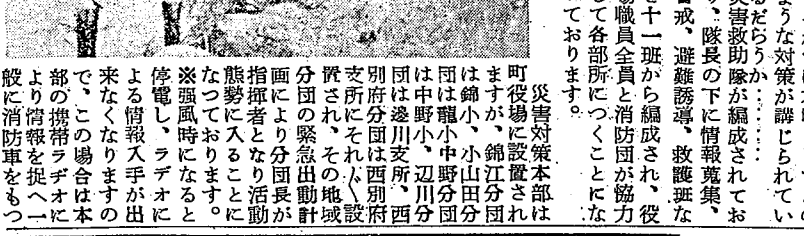 ような対策が講じられてい
るだらうか………
災害救助隊が編成されてお
り、隊長の下に情報蒐集、
警戒、避難誘導、救護班な
ど十一班から編成され、役
場職員全員と消防団が協力
して各部所につくことにな
つております。
災害対策本部は
町役場に設置され
ますが、錦江分団
は錦小、小山田分
団は龍小中野分団
は中野小、辺川分
団は邊川支所、西
別府分団は西別府
支所にそれ〱設
置され、その地域
分団の緊急出動計
画により分団長が
指揮者となり活動
態勢に入ることに
なつております。
※強風時になると
停電し、ラデオに
よる情報入手が出
来なくなりますの
で、この場合は本
部の携帯ラヂオに
より情報を捉へ一
般に消防車をもつ